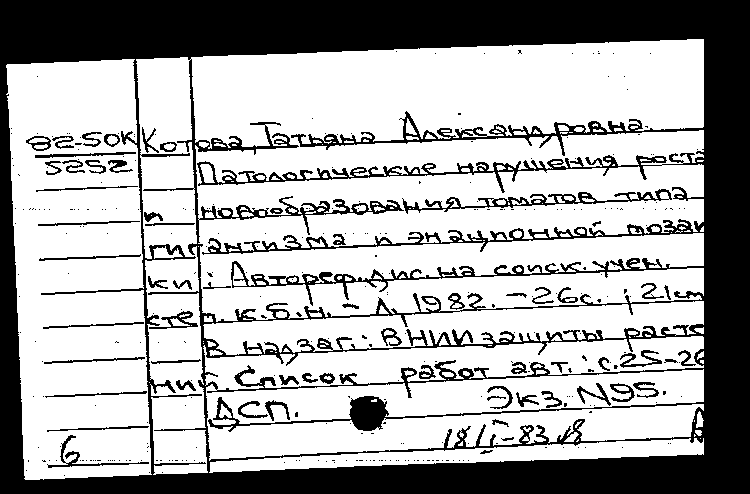 82-50К Котова, Татьяна Александровна.
5252 Патологические нарушения роста
и новообразования томатов типа
гигантизма и энационной мозаи
ки : Автореф. дис. на соиск. учен.
степ. к.б.н. - Л., 1982. - 26с. ; 21см
В надзаг.: ВНИИ защиты расте
ний. Список работ авт.: с.25-26
ДСП. Экз. N95.
6 18/I-83